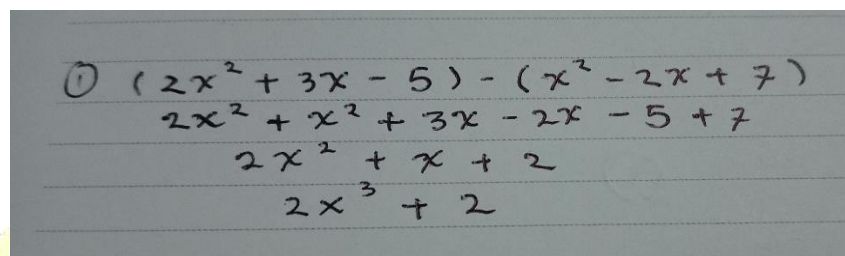 ① (2x² + 3x - 5) - (x² - 2x + 7)
2x² + x² + 3x - 2x - 5 + 7
2x² + x + 2
2x³ + 2